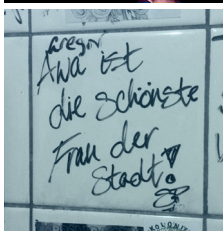 Awa ist
die schönste
Frau der
Stadt!